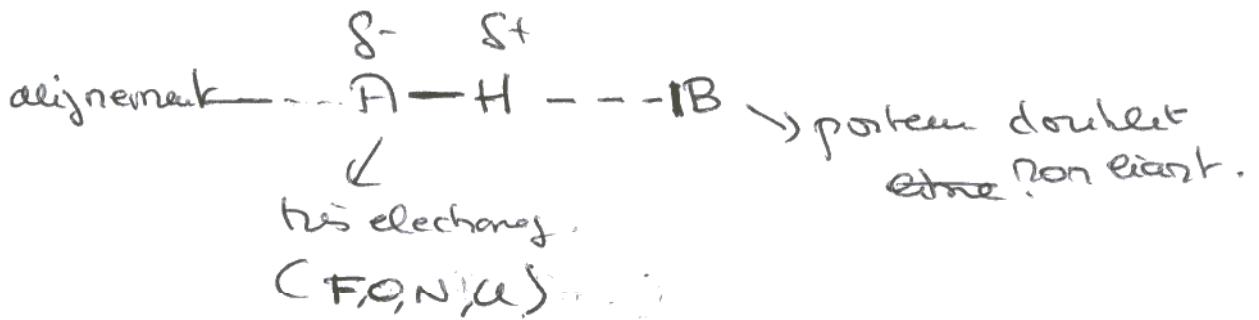 δ- δ+
alignement --- A — H --- |B
porteur doublet
non liant.
très electroneg.
(F,O,N,Cl)